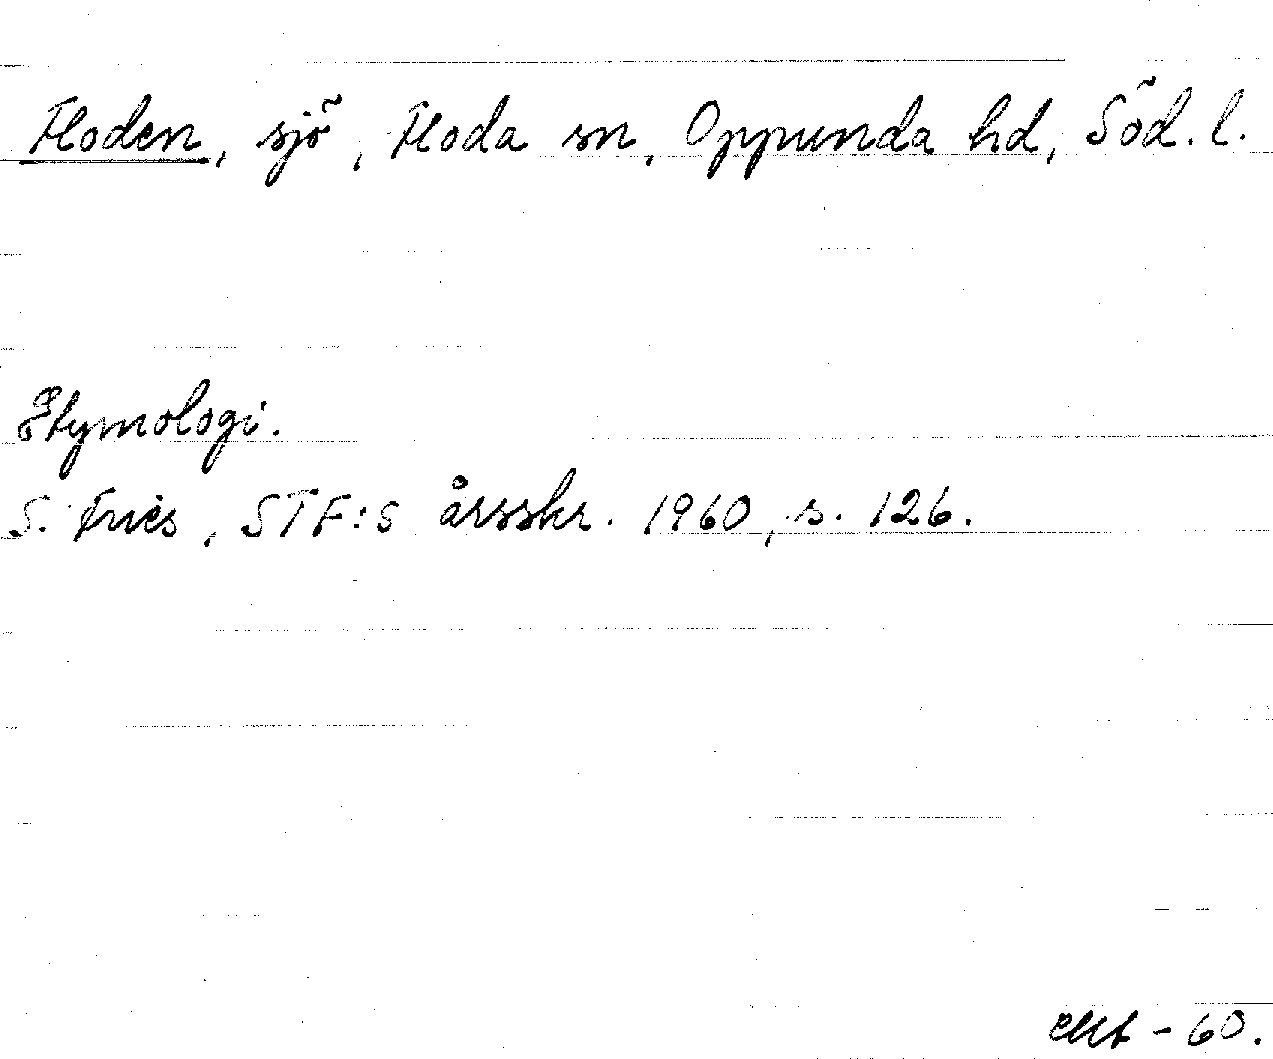 Floden, sjö, Floda sn, Oppunda hd, Söd. l.
Etymologi.
S. Fries, STF:s årsskr. 1960, s. 126.
- 60.